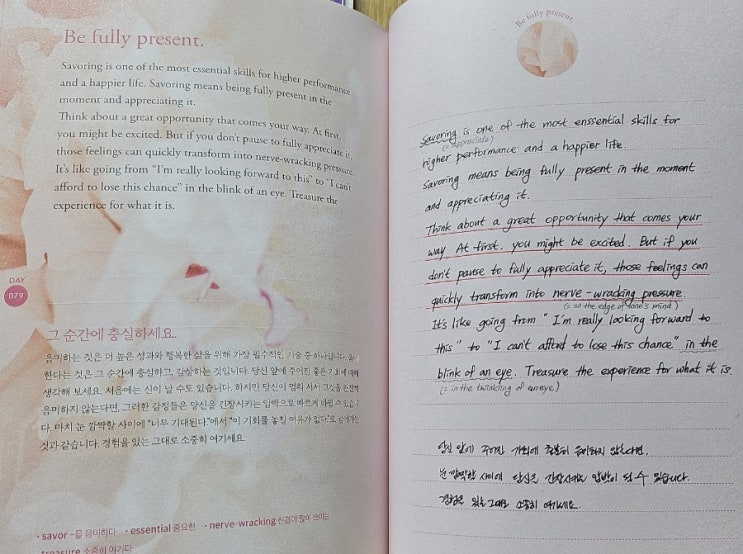 Be fully present.
Savoring is one of the most essential skills for higher performance
and a happier life. Savoring means being fully present in the
moment and appreciating it.
Think about a great opportunity that comes your way. At first,
you might be excited. But if you don't pause to fully appreciate it,
those feelings can quickly transform into nerve-wracking pressure.
It's like going from "I'm really looking forward to this" to "I can't
afford to lose this chance" in the blink of an eye. Treasure the
experience for what it is.
DAY
079
그 순간에 충실하세요.
음미하는 것은 더 높은 성과와 행복한 삶을 위해 가장 필수적인 기술 중 하나입니다.
한다는 것은 그 순간에 충실하고, 감상하는 것입니다. 당신 앞에 주어진 좋은 기회에 대해
생각해 보세요. 처음에는 신이 날 수도 있습니다. 하지만 당신이 멈춰 서서 그것을
음미하지 않는다면, 그러한 감정들은 당신을 긴장시키는 압박으로 빠르게 바뀔 수 있습니
다. 마치 눈 깜짝할 사이에 "너무 기대된다."에서 "이 기회를 놓칠 여유가 없다"로
것과 같습니다. 경험을 있는 그대로 소중히 여기세요.
• savor ~을 음미하다 • essential 중요한 • nerve-wracking 신경이 많이 쓰이는
treasure 소중히 여기다
Be fully present.
Savoring is one of the most enssential skills for
(= appreciate)
higher performance and a happier life.
Savoring means being fully present in the moment
and appreciating it.
Think about a great opportunity that comes your
way. At first, you might be excited. But if you
don't pause to fully appreciate it, those feelings can
quickly transform into nerve-wracking pressure.
(= at the edge of one's mind)
It's like going from "I'm really looking forward to
this" to "I can't afford to lose this chance" in the
blink of an eye. Treasure the experience for what it is.
(= in the twinkling of an eye)
당신 앞에 주어진 기회에 충분히 음미하지 않는다면,
눈 깜짝할 사이에 당신을 긴장시키는 압박이 될 수 있습니다.
경험을 있는 그대로 소중히 여기세요.